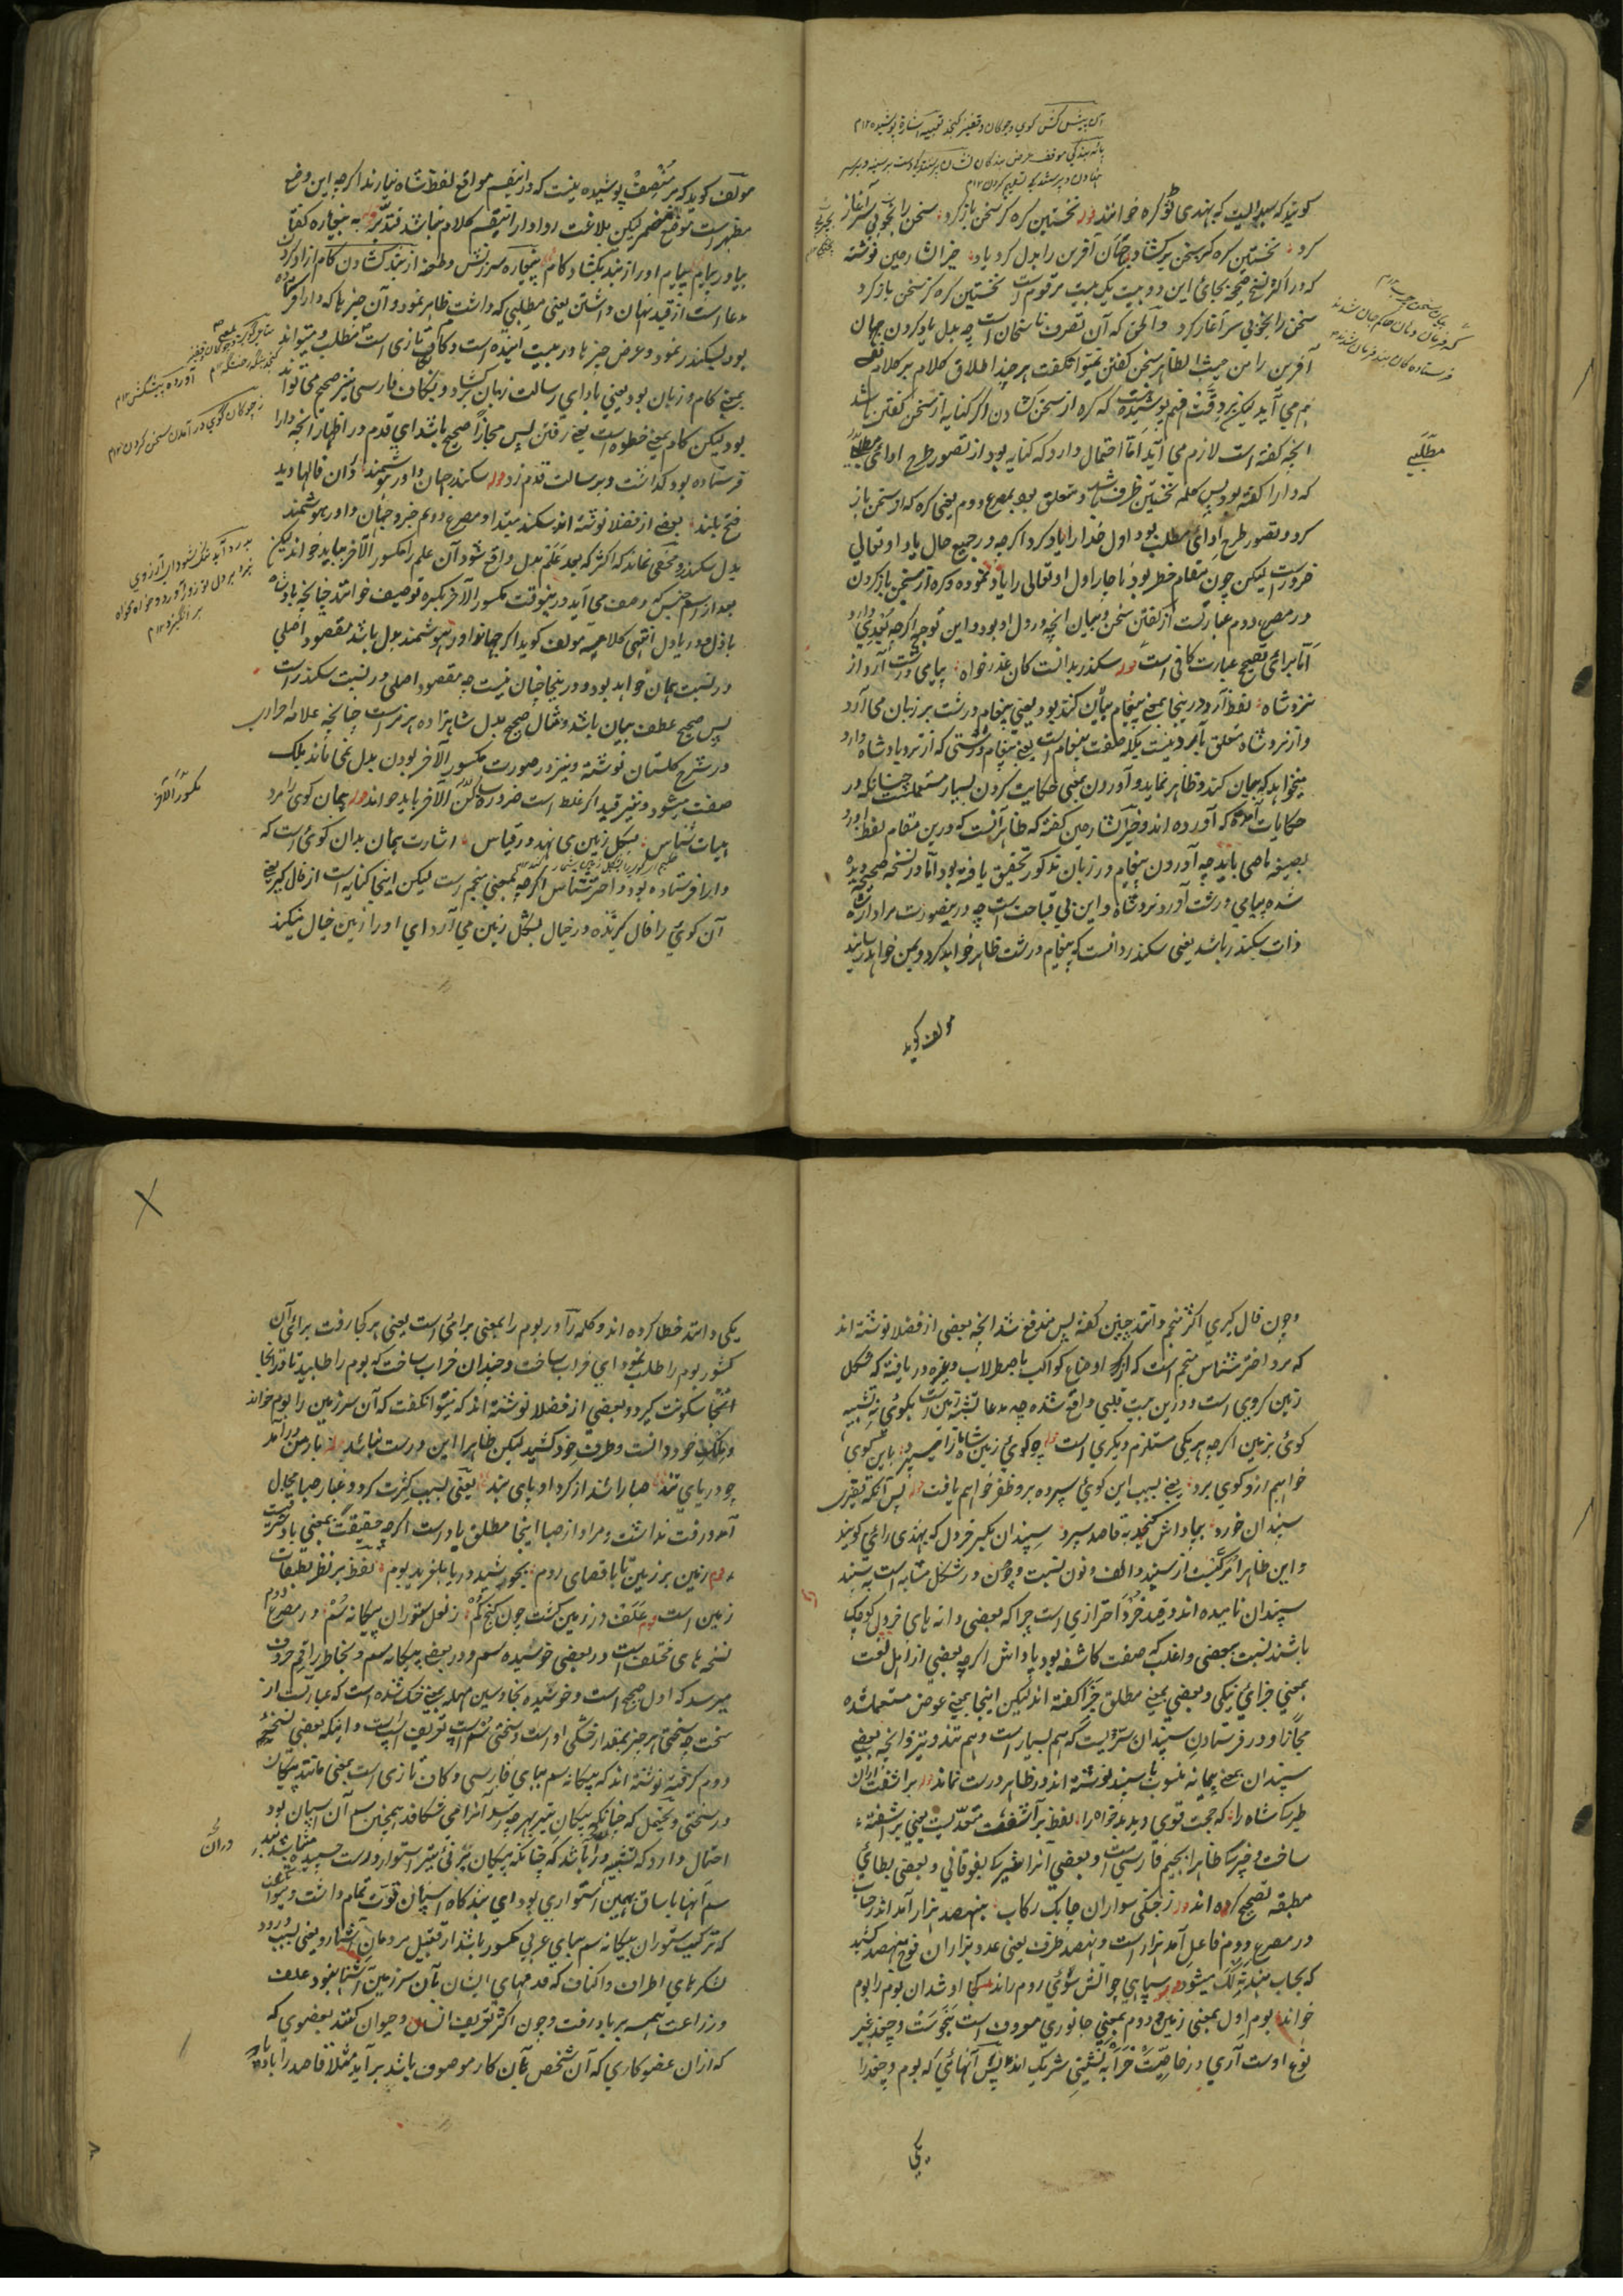 گویند که بهندی گره خوانند قوله نخستین گره کز سخن باز کرد سخن را بخوبی سر آغاز
کرد نخستین گره کز سخن برگشاد جهان آفرین را بدل کرد یاد خیر الشارحین نوشته
که در اکثر نسخ صحیحه بجای این دو بیت یک بیت مرقوم است نخستین گره کز سخن باز کرد
سخن را بخوبی سر آغاز کرد و الحق که آن تصرف ناسخان است چه بدل یاد کردن جهان
آفرین را من حیث الظاهر سخن گفتن نمیتوان گفت هر چند اطلاق کلام بر کلام نفسی
هم می آید لیکن بر دقت فهم پوشیده نیست که گره از سخن گشادن اگر کنایه از سخن گفتن باشد
انچه گفته است لازم می آید اما احتمال دارد که کنایه بود از تصور طرح ادای مطلب
که دارا گفته بود پس کلمه نخستین ظرف باشد و متعلق بود بمصرع دوم یعنی گره که از سخن باز
کرد و تصور طرح ادای مطلب بود اول خدا را یاد کرد اگرچه در جمیع حال یاد او تعالی
ضرور است لیکن چون مقام خطر بود ناچار اول او تعالی را یاد نموده و گره از سخن باز کردن
در مصرع دوم عبارت از گفتن سخن و بیان انچه در دل او بود و این توجیه اگرچه بعدی دارد
اما برای تصحیح عبارت کافی است قوله سکندر بدانست کان عذر خواه پیامی درشت آرد از
نزد شاه لفظ آرد در اینجا بمعنی پیغام بیان کند بود یعنی پیغام درشت بر زبان می آرد
و از نزد شاه متعلق بآرد نیست بلکه صفت پیغام است یعنی پیغام درشتی که از نزد پادشاه دارد
میخواهد که بیان کند و ظاهر نماید و آوردن بمعنی حکایت کردن بسیار مستعمل است چنانکه در
حکایات آمده که آورده اند و خیر الشارحین گفته که ظاهر آنست که درین مقام لفظ آورد
بصیغه ماضی باید چه آوردن پیغام در زبان مذکور تحقیق یافته بود اما در نسخه صحیحه دیده
شده پیامی درشت آورد نزد شاه و این بی قباحت است چه درینصورت مراد از شاه
ذات سکندر باشد یعنی سکندر دانست که پیغام درشت ظاهر خواهد کرد و بمن خواهد رسانید
مولف گوید
مطلبی
مولف گوید که بر منصف پوشیده نیست که در اینقسم مواقع لفظ شاه نیارند اگرچه این وضع
مظهر است موضع مضمر لیکن بلاغت روادار اینقسم کلام نباشد فتدبر قوله به بیچاره گفتا
بیاور پیام پیام اور از بند بگشاد کام بیچاره سرزنش و طعنه از بند گشادن کام آزاد کردن
مدعا است از قید نهان داشتن یعنی مطلبی که داشت ظاهر نمود و آن چیزها که دارا فرستاده
بود بسکندر نمود و عرض چیزها در بیت اینده است و کاف تازی است مطلب و میتواند
بمعنی کام و زبان بود یعنی بادای رسالت زبان گشاد و بکاف فارسی نیز صحیح می تواند
بود لیکن گام بمعنی خطوه است یعنی رفتن پس مجازا صحیح باشد ای قدم در اظهار انچه دارا
فرستاده بود گذاشت و بر سالت قدم زد قوله سکندر جهان داور هوشمند دران فالها دید
فتح بلند بعضی از فضلا نوشته اند سکندر مبتدا و مصرع دوم خبر و جهان داور هوشمند
بدل سکندر و مخفی نماند که اکثر که بعد علم بدل واقع شود آن علم را مکسور الآخر بباید خواند لیکن
بعد از اسم جنس که وصف می آید درینوقت مکسور الآخر بکسره توصیف خوانند چنانچه بادشاه
باذل و دریا دل انتهی کلامه مولف گوید اگر جهاندار هوشمند بدل باشد مقصود اصلی
در نسبت همان خواهد بود و در ینجا چنان نیست چه مقصود اصلی در نسبت سکندر است
پس صحیح عطف بیان باشد و مثال صحیح بدل شاهزاده هرمز است چنانچه علامه احراری
در شرح گلستان نوشته و نیز در صورت مکسور الآخر بودن بدل نمی ماند بلکه
صفت میشود و نیز قید اکثر غلط است ضرورة ساکن الآخر باید خواند قوله همان گوی را مرد
هیات شناس بشکل زمین می نهد در قیاس اشارت همان بدان گوی است که
دارا فرستاده بود و اختر شناس اگرچه بمعنی منجم است لیکن اینجا کنایه است از فال گیر یعنی
آن گوی را فال گیرنده در خیال بشکل زمین می آرد ای او را زمین خیال میکند
مکسور الآخر
و چون فال گیری اکثر منجم دانند چنین گفته پس مندفع شد انچه بعضی از فضلا نوشته اند
که مرد اختر شناس منجم است که از اوضاع کواکب باصطرلاب وغیره دریافته که شکل
زمین کروی است و درین بیت قلبی واقع شده چه مدعا تشبیه زمین است بگوی نه تشبیه
گوی بزمین اگرچه هر یکی مستلزم دیگری است قوله چو گوی زمین شاه را سپرد باین گوی
خواهم ازو گوی برد یعنی بسبب این گوی سپرده برو ظفر خواهم یافت قوله پس آنگه بتقدیر
سپندان خورد بپاداش کنجد به قاصد سپرد سپندان بکسر خردل که بهندی رائی گویند
و این ظاهرا مرکبست از سپند و الف و نون نسبت و چون در شکل مشابه است به سپند
سپندان نامیده اند و قید خرد احترازی است چرا که بعضی دانه های خردل کوچک
باشند نسبت ببعضی و اغلب که صفت کاشفه بود پاداش اگرچه بعضی از اهل لغت
بمعنی جزای نیکی و بعضی بمعنی مطلق جزا گفته اند لیکن اینجا بمعنی عوض مستعمل شده
مجازا و در فرستادن سپندان سریست که هم بسیار است و هم تند و تیز و انچه بعضی
سپندان بمعنی پیمانه منسوب بسپند نوشته اند در ظاهر درست نماند قوله بر اشفت ازان
طیره شاه را که حجت قوی دید بدخواه را لفظ برآشفت متعدیست یعنی بر اشفته
ساخت و خیره ظاهرا بجیم فارسی است و بعضی آنرا بفوقانی و بعضی بطای
مطبقه تصحیح کرده اند قوله ز جنگی سواران چابک رکاب بنهصد هزار آمد اندر حساب
در مصرع دوم فاعل آمد هزار است و نهصد ظرف یعنی عدد هزاران فوج نهصد کشید
که بحساب هندیه نه لک میشود قوله سپاهی چو آتش سوی روم راند کجا او شد ان بوم را بوم
خواند بوم اول بمعنی زمین و دوم بمعنی جانوری معروف است بنحوست و چغد غیر
نوع اوست آری در خاصیت خرابه نشینی شریک اند پس آنهائی که بوم و چغد را
یکی
یکی دانند خطا کرده اند و کلمه را در بوم را بمعنی برای است یعنی هر کجا رفت برای آن
کشور بوم را طلب نمود ای خراب ساخت و چندان خراب ساخت که بوم را طلبید تا در انجا
سکونت گیرد و بعضی از فضلا نوشته اند که میتوان گفت که آن سرزمین را بوم خواند
و ملک خود دانست و طرف خود کشید لیکن ظاهرا این درست نباشد قوله بارمن در آمد
چو دریای تند صبا را شد از گرد او پای کند یعنی بسبب کثرت گرد و غبار صبا مجال
آمد و رفت نداشت و مراد از صبا اینجا مطلق باد است اگرچه حقیقت بمعنی باد مشرق است
قوله زمین بر زمین تا باقصای روم بجوشید دریا بلرزید بوم لفظ بر نظر بطبقات
زمین است قوله علف در زمین گشت چون گنج گم ز نعل ستوران پیکانه سم در مصرع دوم
نسخه های مختلف است در بعضی خوشیده سم و در بعضی پیکانه سم و بخاطر راقم حروف
میرسد که اول صحیح است و خوشیده بخا و سین مهمله یعنی خشک شده است که عبارت از
سخت چه سختی هر چیز بمقدار خشکی اوست و سختی سم اسپ تعریف اسپ است و اینکه بعضی نسخه
دوم گرفته نوشته اند که پیکانه سم ببای فارسی و کاف تازی است بمعنی مانند پیکان
در سختی و محتمل که چنانکه پیکان تیر بهر چه رسد آنرا می شکافد همچنین سم آن اسپان بود
احتمال دارد که تشبیه دران باشد که چنانکه پیکان برنی تیر استوار و درست چسپیده می باشد
سم آنها با ساق بهمین استواری بود ای بندگاه اسپان قوت تمام داشت و میتوان
که ترکیب ستوران بیگانه سم ببای عربی مکسور باشد از قبیل مردمان آشنا رو یعنی بسبب ورود
لشکرهای اطراف و اکناف که قدمهای ایشان بآن سرزمین آشنا نبود علف
و زراعت همه برباد رفت و چون اکثر تعریف انسان و حیوان کنند بعضوی که
که ازان عضو کاری که آن شخص بآن کار موصوف باشد برآید مثلا قاصد را بادپا
دران